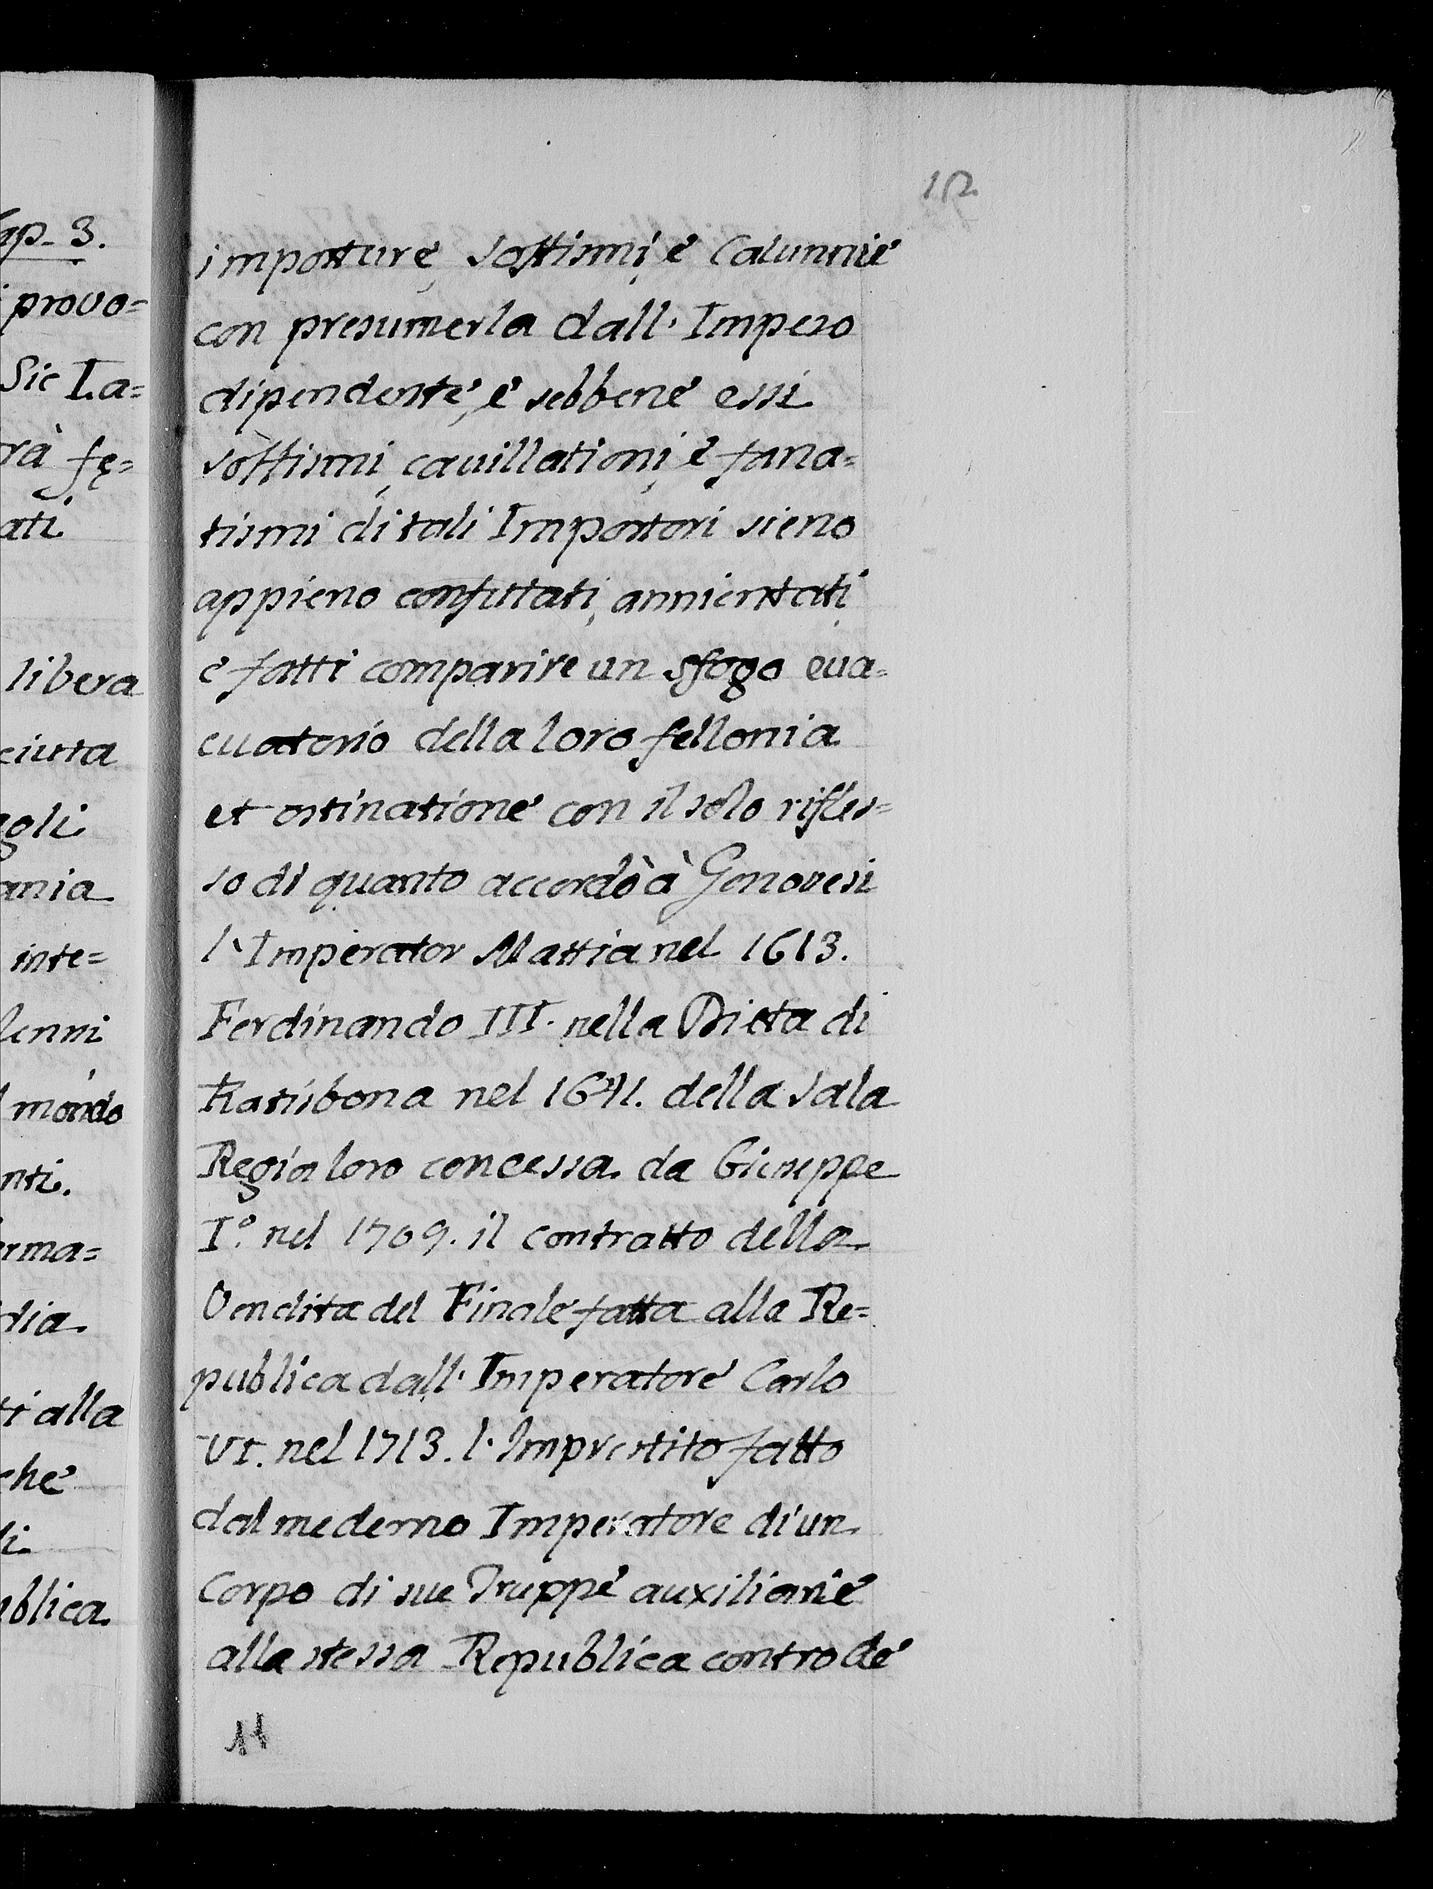 152
ap. 3.
provo=
Sic La=
rà fe=
ati
libera
ciuta
gli
ania
inte=
lenni
mondo
nti.
rma=
dia
ti alla
che
di
ublica
imposture, soffismi, e Calunnie
con presumerla dall' Impero
dipendente, e sebbene essi
soffismi, cavillationi, e fana=
tismi di tali Impostori sieno
appieno confutati, annientati,
e fatti comparire un sfogo eva=
cuatorio della loro fellonia
et ostinatione con il solo rifles=
so di quanto accordò à Genovesi
l'Imperator Mattia nel 1613.
Ferdinando III. nella Dieta di
Ratisbona nel 1641. della Sala
Regia loro concessa da Giuseppe
I.º nel 1709. il contratto della
Vendita del Finale fatta alla Re=
publica dall' Imperatore Carlo
VI. nel 1713. l'Imprestito fatto
dal mederno Imperatore di un
Corpo di sue Truppe auxiliarie
alla stessa Republica contro de
11